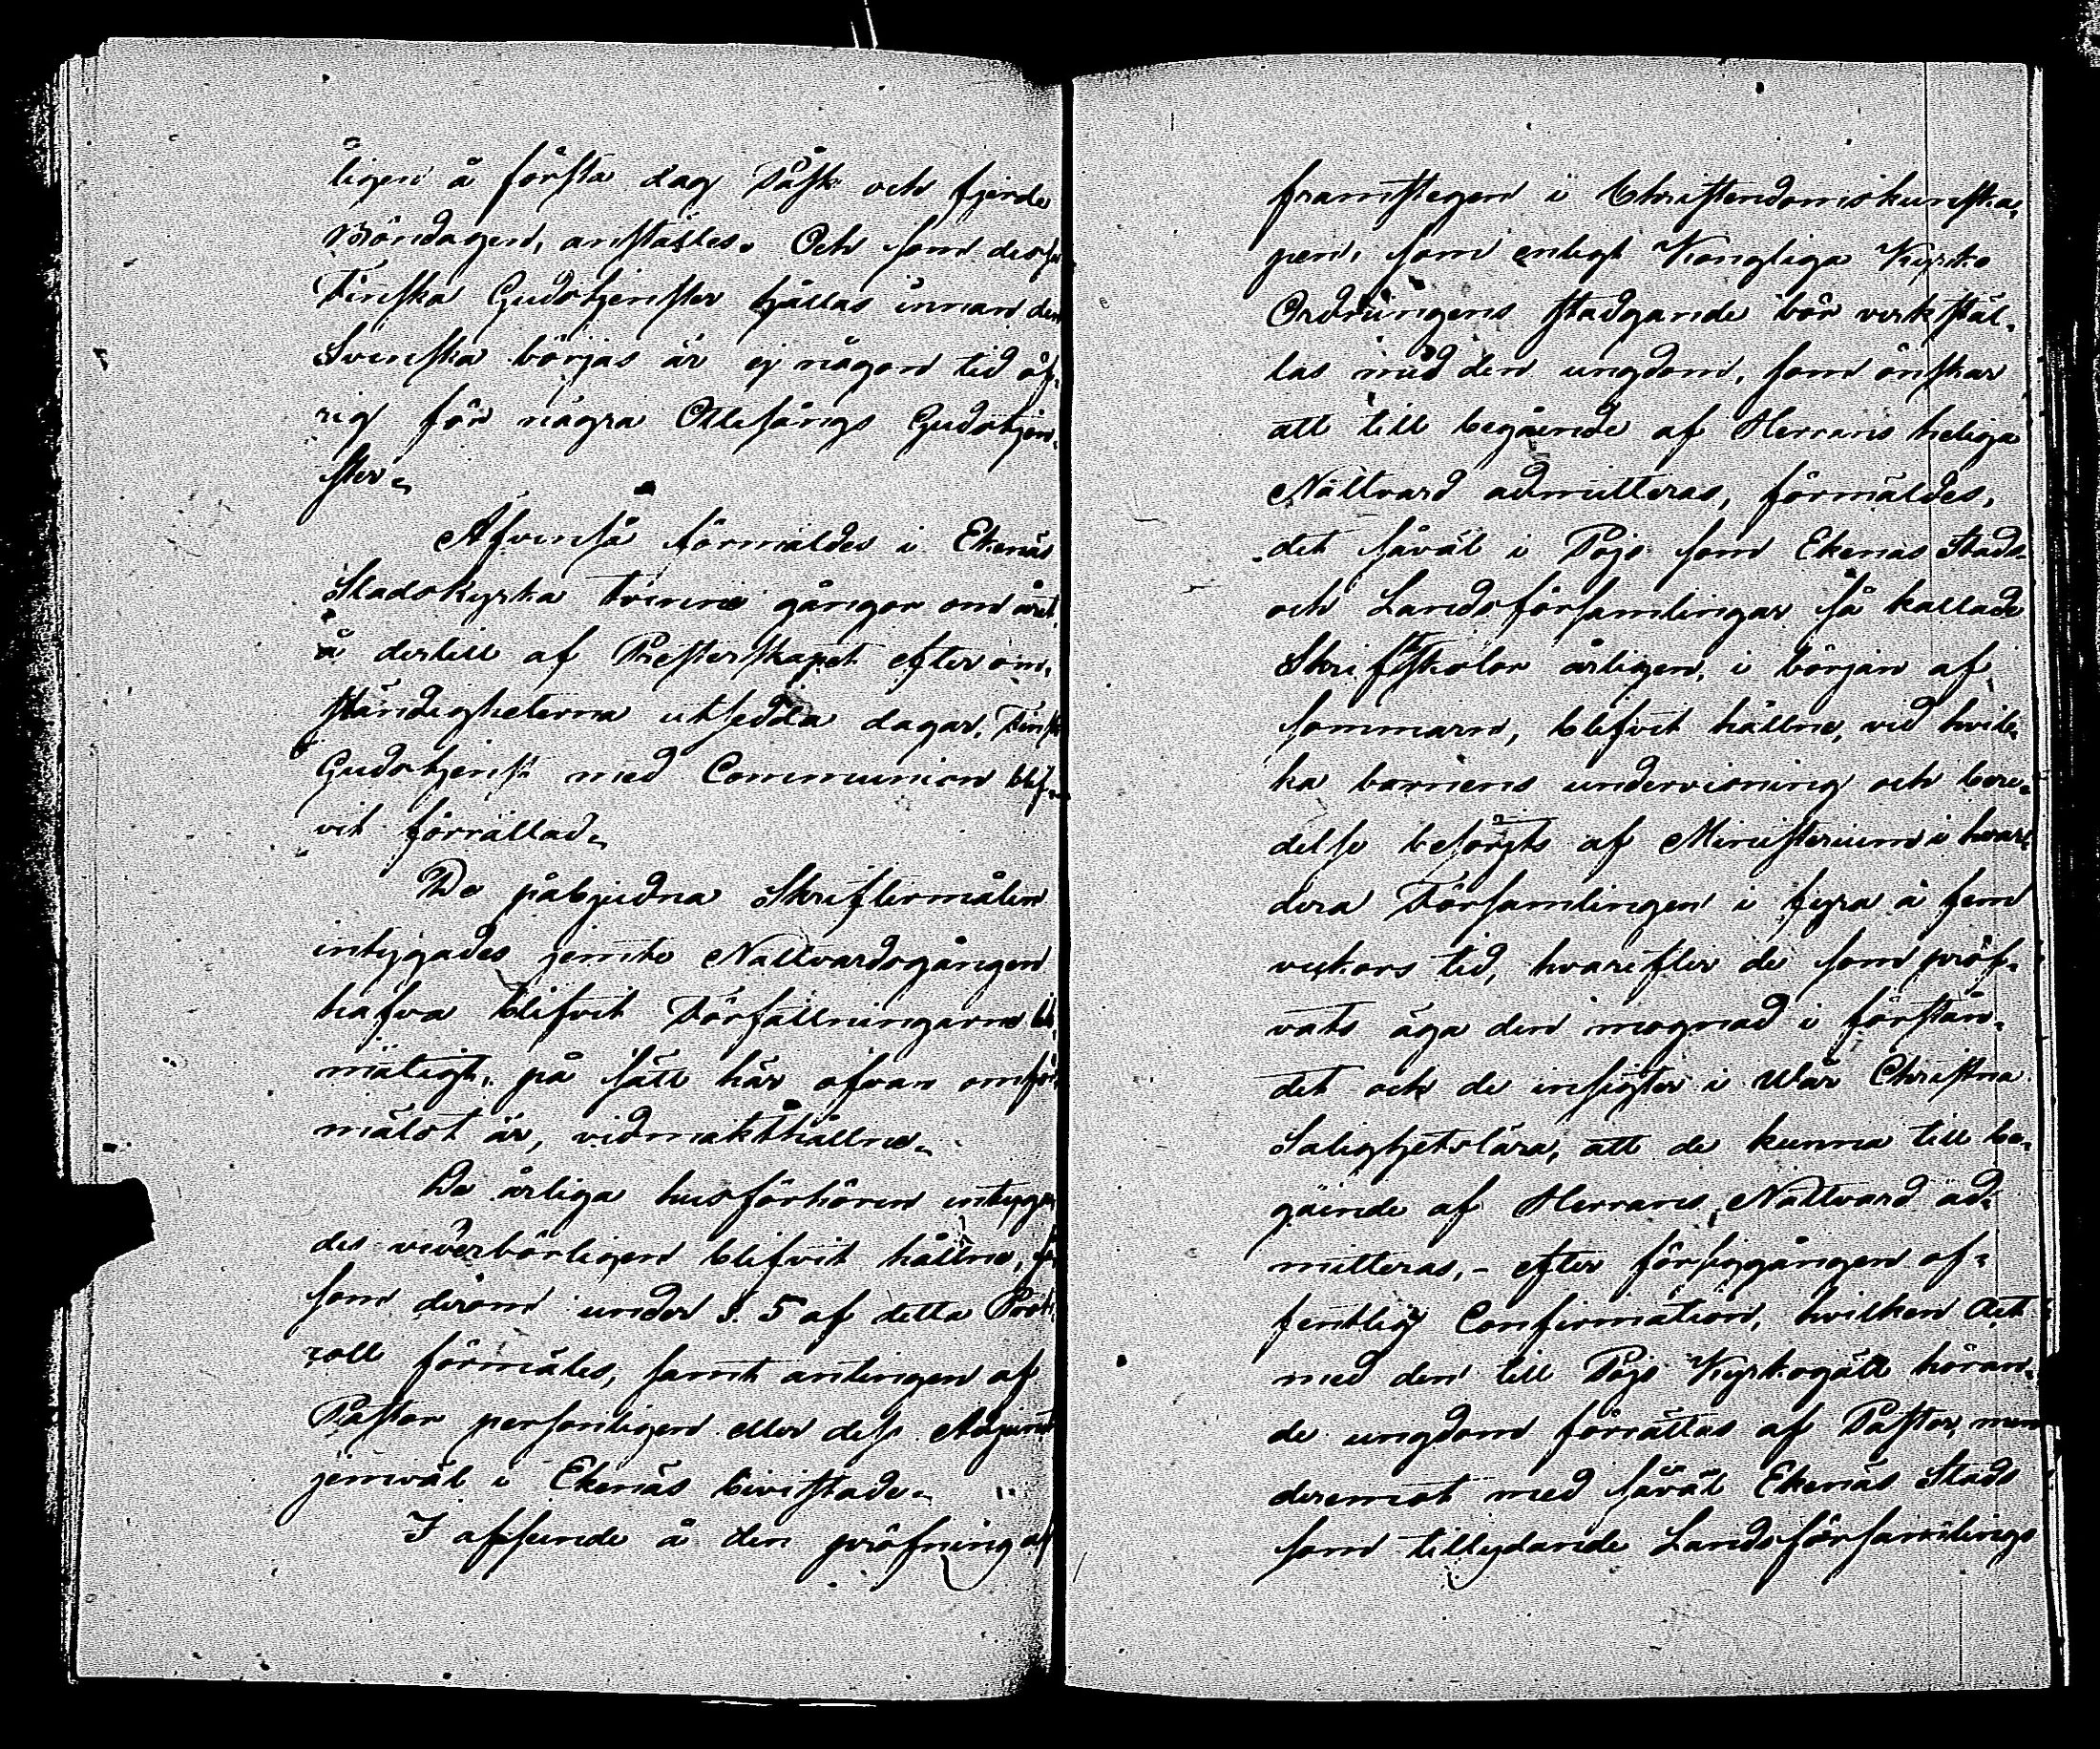 ligen å första dag Påsk och fjerde
Böndagen, anställes. Och som dessa
Finska Gudstjenster hållas innan den
Svenska börjas är ej någon tid öf-
rig för några Ottesångs Gudstjen-
ster.
Äfvenså förmäldes i Ekenäs
Stadskyrka tvenne gångor om året,
å dertill af Presterskapet efter om-
ständigheterna utsedda dagar, Finsk
Gudstjenst med Communion blif-
vit förrättad.
De påbjudna Skriftermålen
intygades jemte Nattvardsgången
hafva blifvit Författningarne lik-
mätigt, på sätt här ofvan omför-
mäldt är, vidmakthållne.
De årliga husförhören intyga-
des vederbörligen blifvit hållne,
som derom under §. 5 af detta Proto-
coll förmäles, samt antingen af
Pastor personligen eller dess Adjunct
jemväl i Ekenäs bivistade.
I afseende å den pröfning af
framstegen i Christendomskunska-
pen, som enligt Kongliga Kyrko
Ordningens stadgande bör verkstäl-
las med den ungdom, som önskar
att till begående af Herrans heliga
Nattvard admitteras, förmäldes,
det såväl i Pojo som Ekenäs Stads-
och Landsförsamlingar så kallade
Skriftskolor årligen, i början af
sommarn, blifvit hållne, vid hvil-
ka barnens undervisning och bere-
delse besörgts af Ministerium i hvar-
dera Församlingen i fyra à fem
veckors tid, hvarefter de som pröf-
vats äga den mognad i förstån-
det och de insigter i vår Christna
Salighetslära, att de kunna till be-
gående af Herrans Nattvard ad-
mitteras, - efter försiggången of-
fentlig Confirmation, hvilken Act
med den till Pojo Kyrkogäll höran-
de ungdom förrättas af Pastor, men
deremot med såväl Ekenäs Stads
som tillydande Landsförsamlings